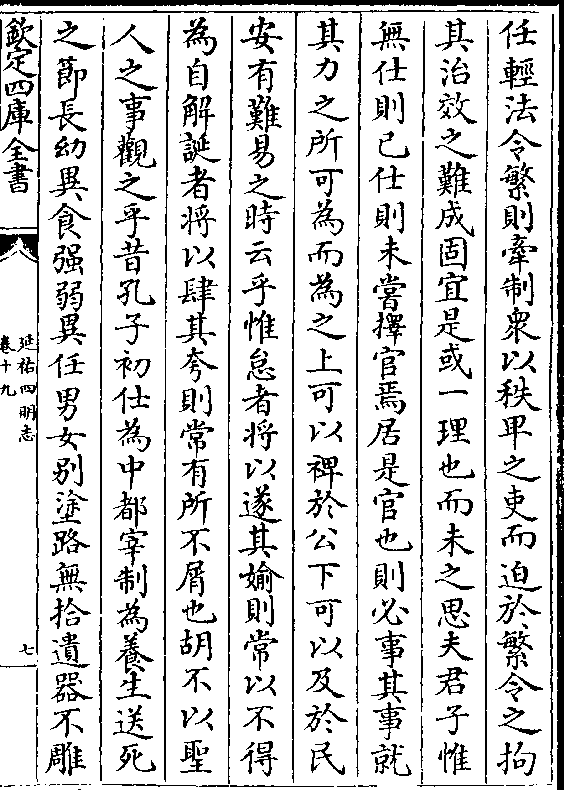 任輕法令繁則牽制衆以秩卑之吏而迫於繁令之拘
其治效之難成固宜是或一理也而未之思夫君子惟
無仕則已仕則未嘗擇官焉居是官也則必事其事就
其力之所可為而為之上可以裨於公下可以及於民
安有難易之時云乎惟怠者將以遂其婾則常以不得
為自解誕者將以肆其夸則常有所不屑也胡不以聖
人之事觀之乎昔孔子初仕為中都宰制為養生送死
之節長幼異食强弱異任男女别塗路無拾遺器不雕
欽定四庫全書
延祐四明志
卷十九
七